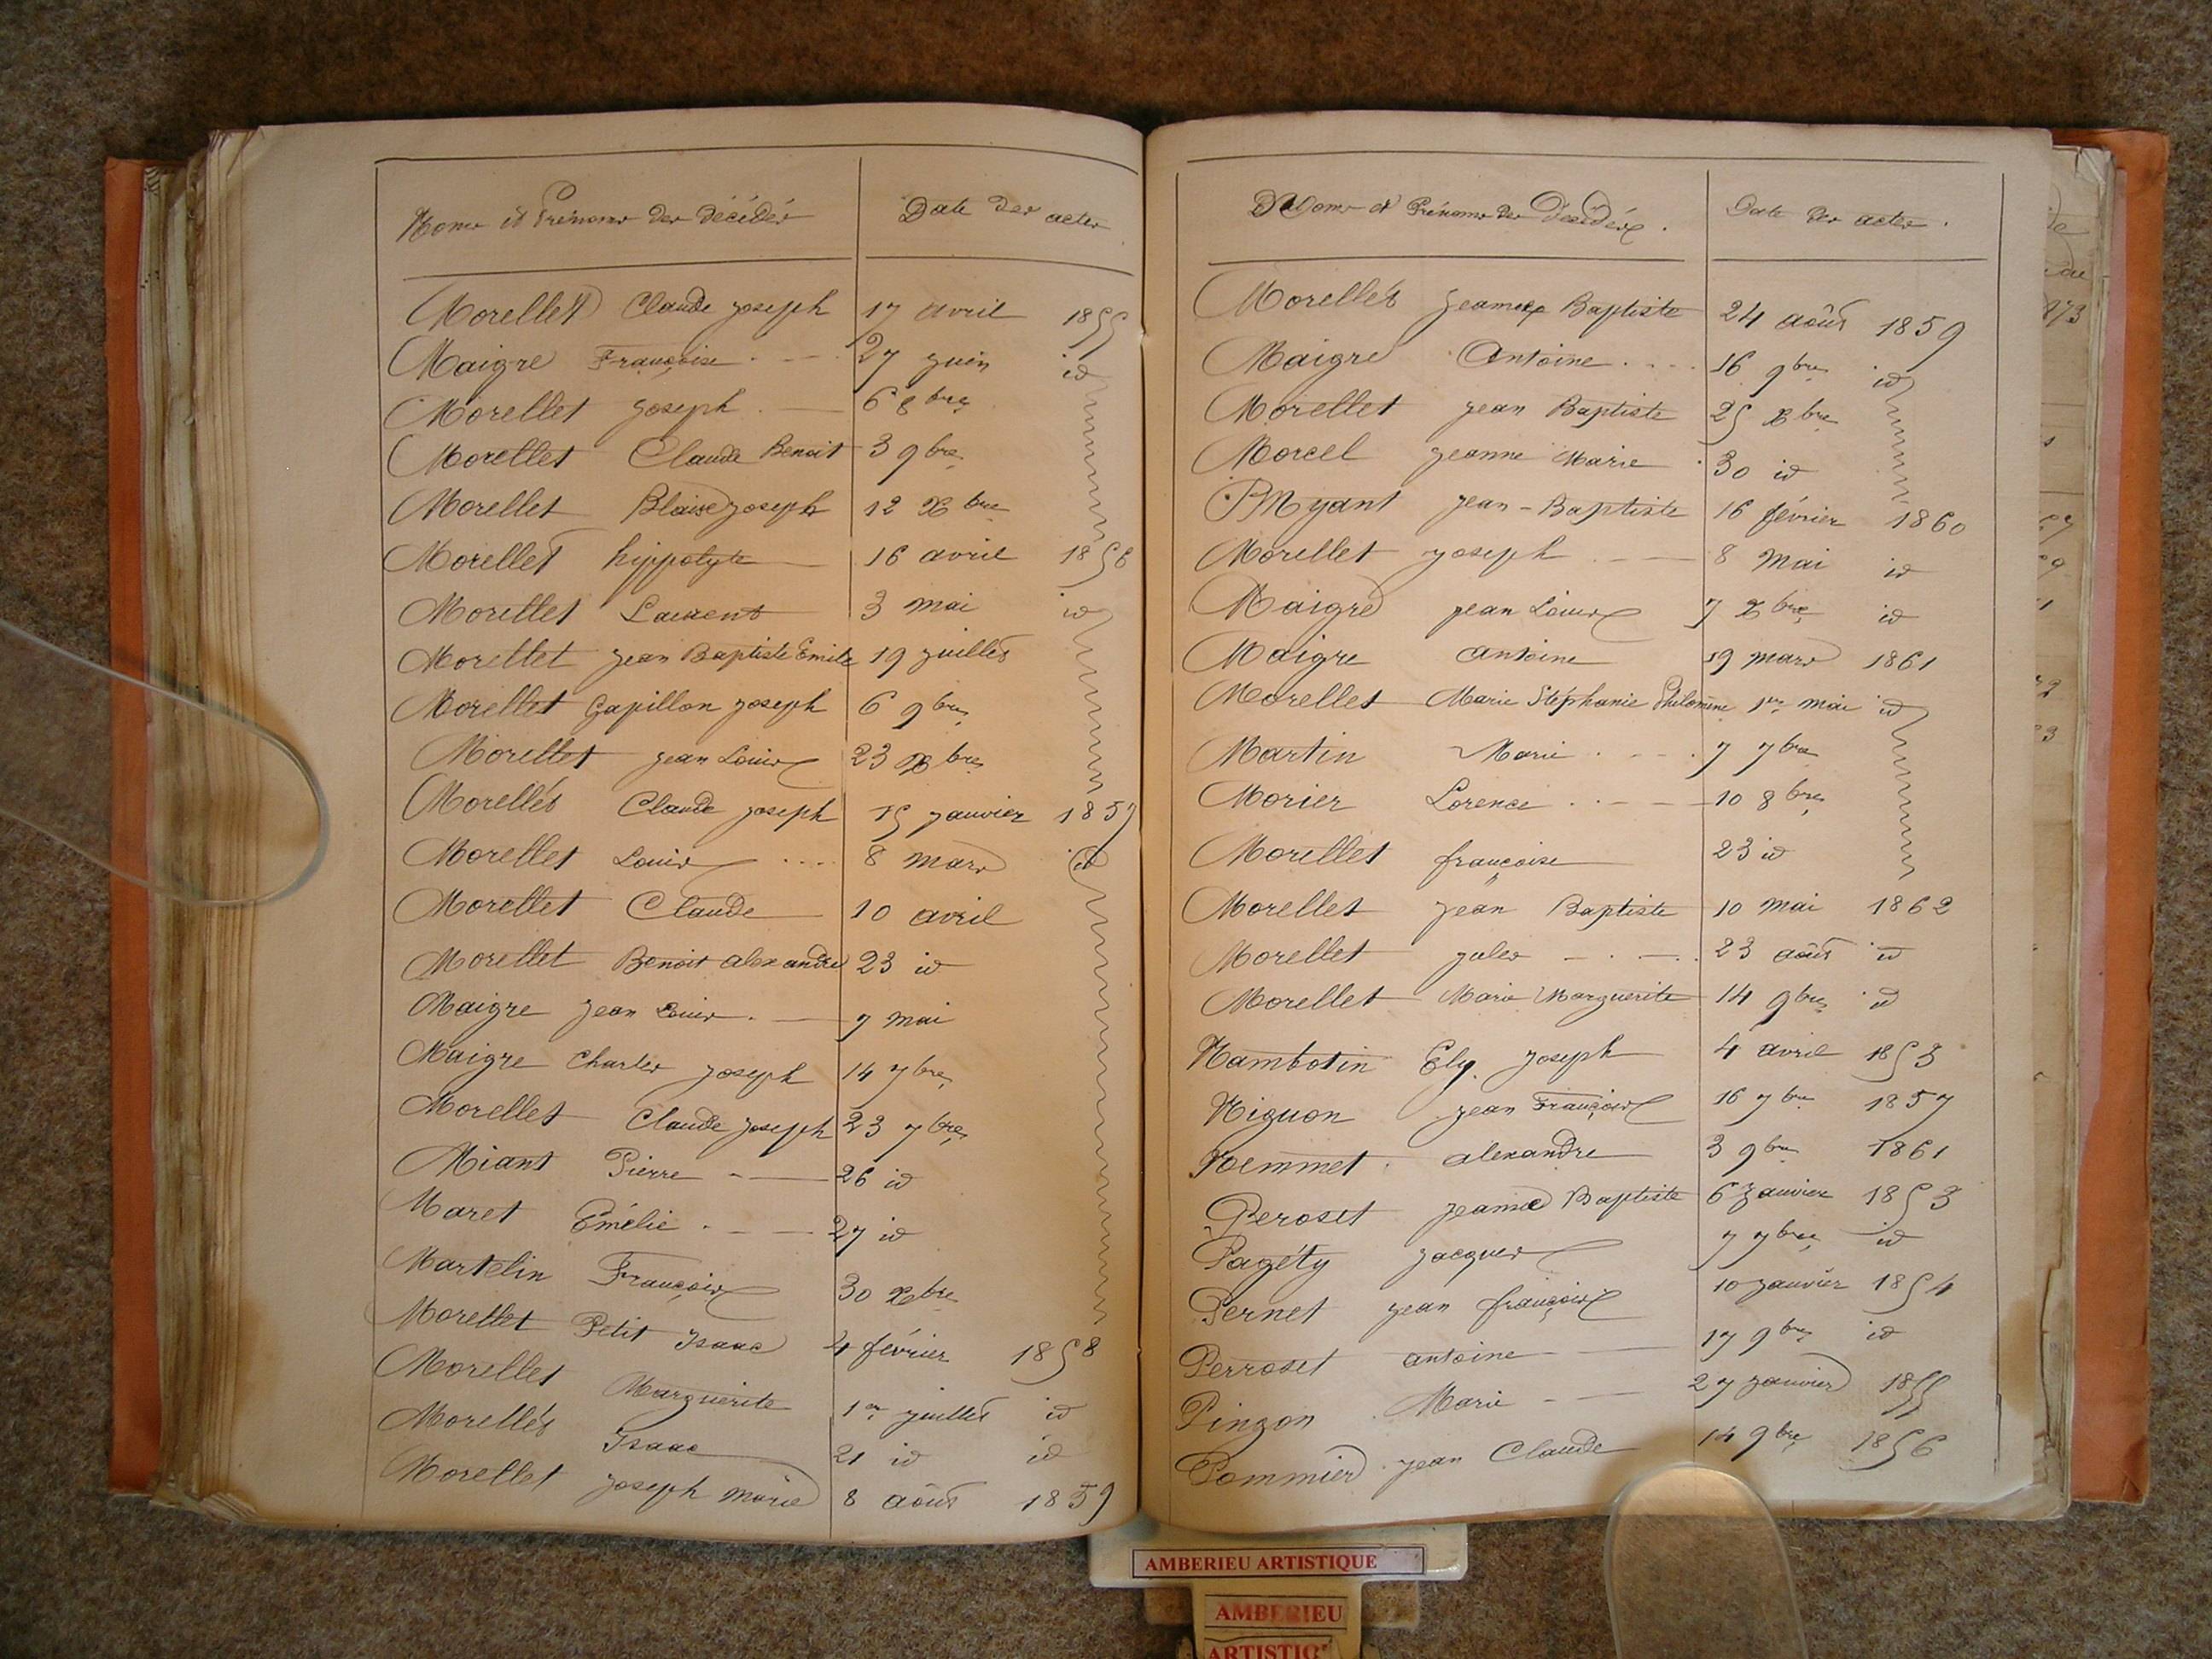 Noms et Prénoms des décédés Date des actes
Morellet Claude joseph 17 avril 1855
Maigre Françoise 27 juin id
Morellet joseph 6 8bre
Morellet Claude Benoit 3 9bre
Morellet Blaise joseph 12 Xbre
Morellet hippolyte 16 avril 1856
Morellet Laurent 3 mai id
Morellet jean Baptiste Emile 19 juillet
Morellet Gapillon joseph 6 9bre
Morellet jean Louis 23 Xbre
Morellet Claude joseph 15 janvier 1857
Morellet Louis 8 mars id
Morellet Claude 10 avril
Morellet Benoit alexandre 23 id
Maigre jean Louis 7 mai
Maigre Charles joseph 14 7bre
Morellet Claude joseph 23 7bre
Miant Pierre 26 id
Maret Émélie 27 id
Martelin François 30 Xbre
Morellet Petit Isaac 4 février 1858
Morellet Marguerite 1er juillet id
Morellet Isaac 21 id id
Morellet joseph marie 8 août 1859
Noms et Prénoms des Décédés. Date des actes.
Morellet Baptiste 24 août 1859
Maigre Antoine 16 9bre id
Morellet jean Baptiste 25 Xbre
Morcel jeanne Marie 30 id
Myant jean-Baptiste 16 février 1860
Morellet joseph 8 mai id
Maigre jean Louis 7 Xbre id
Maigre antoine 19 mars 1861
Morellet Marie Stéphanie Philomène 1er mai id
Martin Marie 7 7bre
Morier Lorence 10 8bre
Morellet françoise 23 id
Morellet jean Baptiste 10 mai 1862
Morellet jules 23 août id
Morellet Marie Marguerite 14 9bre id
Nambotin Ely joseph 4 avril 1853
Niguon jean François 16 7bre 1857
Noemmet alexandre 3 9bre 1861
Peroset Baptiste 6 janvier 1853
Pagéty jacques 7 7bre id
Pernet jean françois 10 janvier 1854
Perroset antoine 17 9bre id
Pingon Marie 27 janvier 1855
Pommier jean Claude 14 9bre 1856
AMBERIEU ARTISTIQUE
AMBERIEU